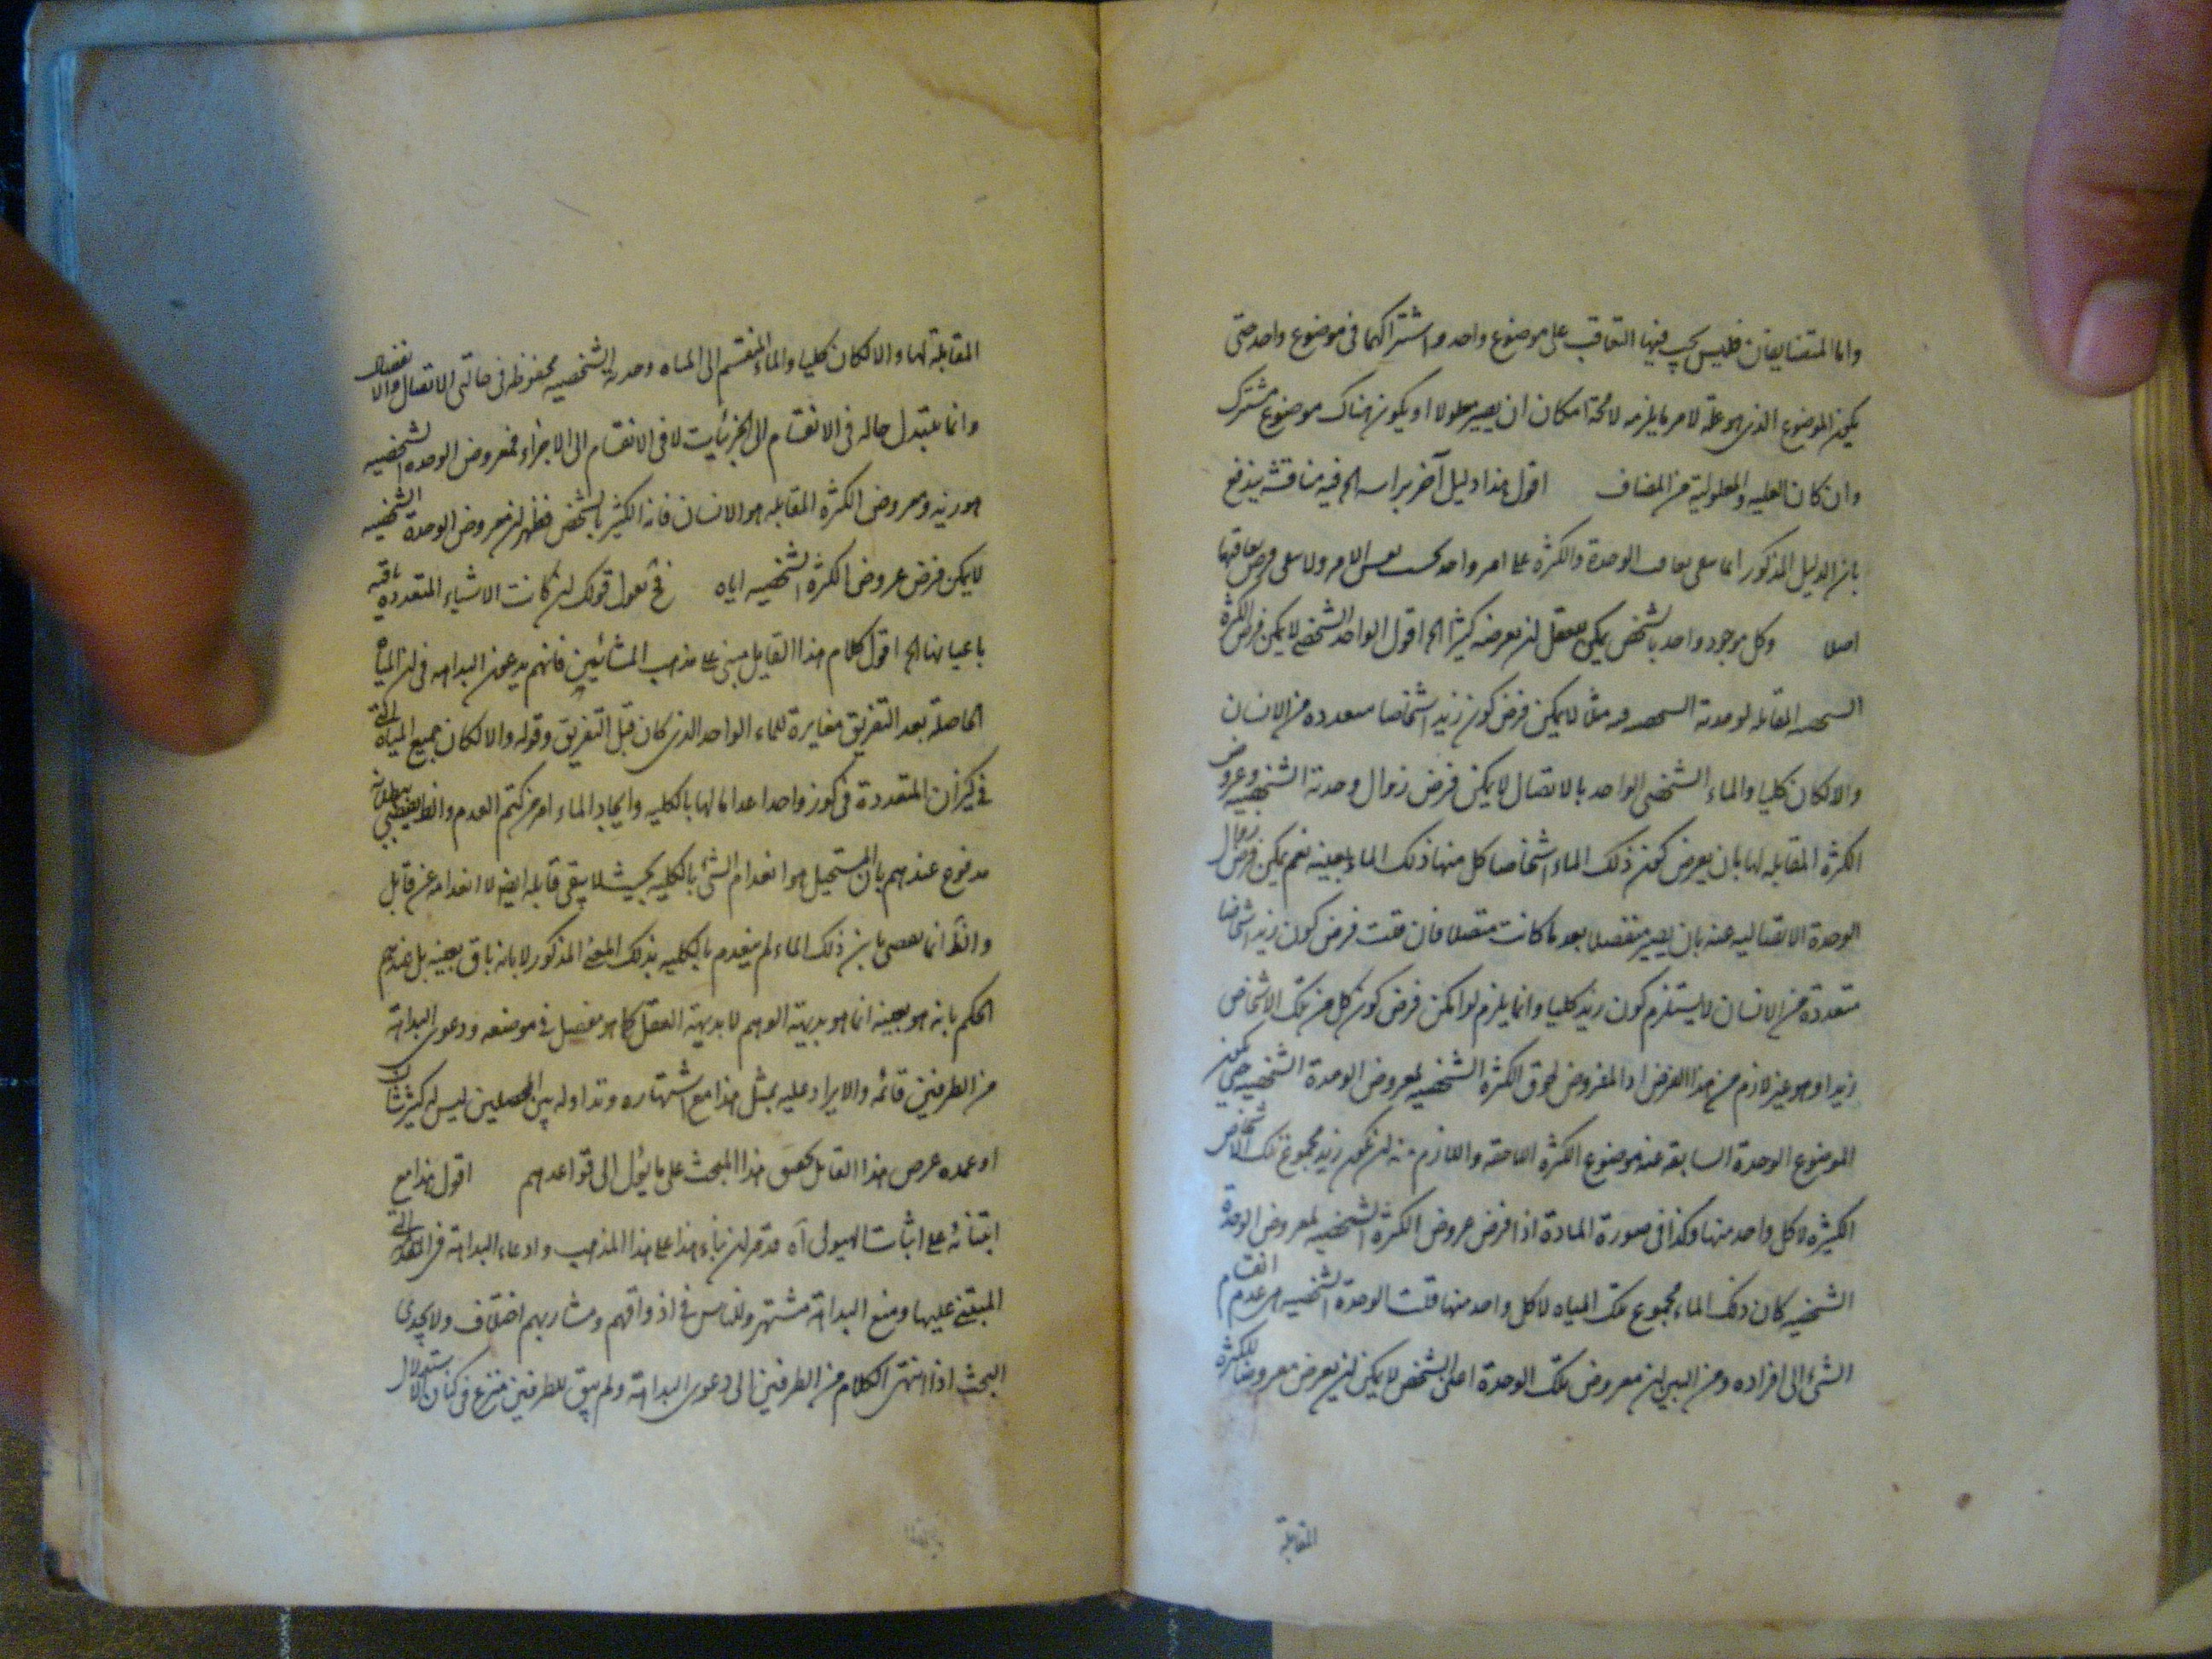 واما المتضايفان فليس يجب فيهما التعاقب على موضوع واحد واشتراكهما فى موضوع واحد حتى
يكون الموضوع الذى هو علة لامر ما يلزمه لا محة امكان ان يصير معلولا او يكون هناك موضوع مشترك
وان كان العليه والمعلولية من المضاف اقول هذا دليل آخر براسه الخ فيه مناقشه يندفع
بان الدليل المذكور انما على تعاقب الوحدة والكثرة على امر واحد بحسب نفس الامر ولا على فرض تعاقبها
اصلا وكل موجود واحد بالشخص يمكن للعقل ان يعرضه كثيرا الخ اقول الواحد الشخصى لا يمكن فرض الكثرة
الشخصيه المقابله لوحدته الشخصيه فيه مثلا لا يمكن فرض كون زيد اشخاصا متعدده من الانسان
والا لكان كليا والماء الشخصى الواحد بالاتصال لا يمكن فرض زوال وحدته الشخصيه وعروض
الكثرة المقابله لها بان يعرض كون ذلك الماء اشخاصا كل منها ذلك الماء بعينه نعم يمكن فرض زوال
الوحدة الاتصاليه عنه بان يصير منفصلا بعد ما كانت متصلا فان قلت فرض كون زيد اشخاصا
متعددة من الانسان لا يستلزم كون زيد كليا وانما يلزم لو امكن فرض كون كل من تلك الاشخاص
زيدا وهو غير لازم من هذا الفرض اذ المفروض لحوق الكثرة الشخصيه لمعروض الوحدة الشخصيه حتى يكون
الموضوع الوحدة السابقه عنه موضوع الكثرة اللاحقه واللازم منه ان يكون زيد مجموع تلك الاشخاص
الكثيرة لا كل واحد منها وكذا فى صورة المادة اذا فرض عروض الكثرة الشخصيه لمعروض الوحدة
الشخصيه كان ذلك الماء مجموع تلك المياه لا كل واحد منها قلت الوحدة الشخصيه هى عدم انقسام
الشئ الى افراده ومن البين ان معروض تلك الوحدة اعنى الشخص لا يمكن ان يعرض معروضا للكثرة
المقابلة
المقابلة لها والا لكان كليا والماء المنقسم الى المياه وحدته الشخصيه محفوظه فى حالتى الاتصال والانفصال
وانما يتبدل حاله فى الانقسام الى الجزئيات لا فى الانقسام الى الاجزاء فمعروض الوحدة الشخصيه
هو زيد ومعروض الكثرة المقابله هو الانسان فانه الكثير بالشخص فظهر ان معروض الوحدة الشخصيه
لا يمكن فرض عروض الكثرة الشخصيه اياه فح نقول قولك ان كانت الاشياء المتعدده باقيه
باعيانها الخ اقول كلام هذا القايل مبنى على مذهب المشائين فانهم يدعون البداهه فى ان المياه
الحاصلة بعد التفريق مغايرة للماء الواحد الذى كان قبل التفريق وقوله والا لكان جميع المياه التى
فى كيزان المتعددة فى كوز واحد اعداما لها بالكليه وايجاد الماء اخر من كتم العدم
مدفوع عندهم بان المستحيل هو انعدام الشئ بالكليه بحيث لا يبقى قابله ايضه لا انعدامه عن قابل
وانما ذلك الماء لم ينعدم بالكليه بذلك المعنى المذكور لا بانه باق بعينه بل عندهم
الحكم بانه هو بعينه انما هو بديهة الوهم لا بديهة العقل كما هو مفصل فى موضعه ودعوى البداهة
من الطرفين قائمه والايراد عليه بمثل هذا مع اشتهاره وتداوله بين المحصلين ليس له كثير شان
او عمده غرض هذا القايل تحقيق هذا المبحث على ما يؤل الى قواعدهم اقول هذا مع
ابتنائه على اثبات الهيولى اه قد مر ان بناء هذا على هذا المذهب وادعاء البداهة فى المقدمة التى
المبتنى عليها ومنع البداهة مشتهر وللناس فى اذواقهم ومشاربهم اختلاف ولا يجدى
البحث اذا انتهى الكلام من الطرفين الى دعوى البداهة ولم يبق للطرفين منزع فى كنانة الاستدلال